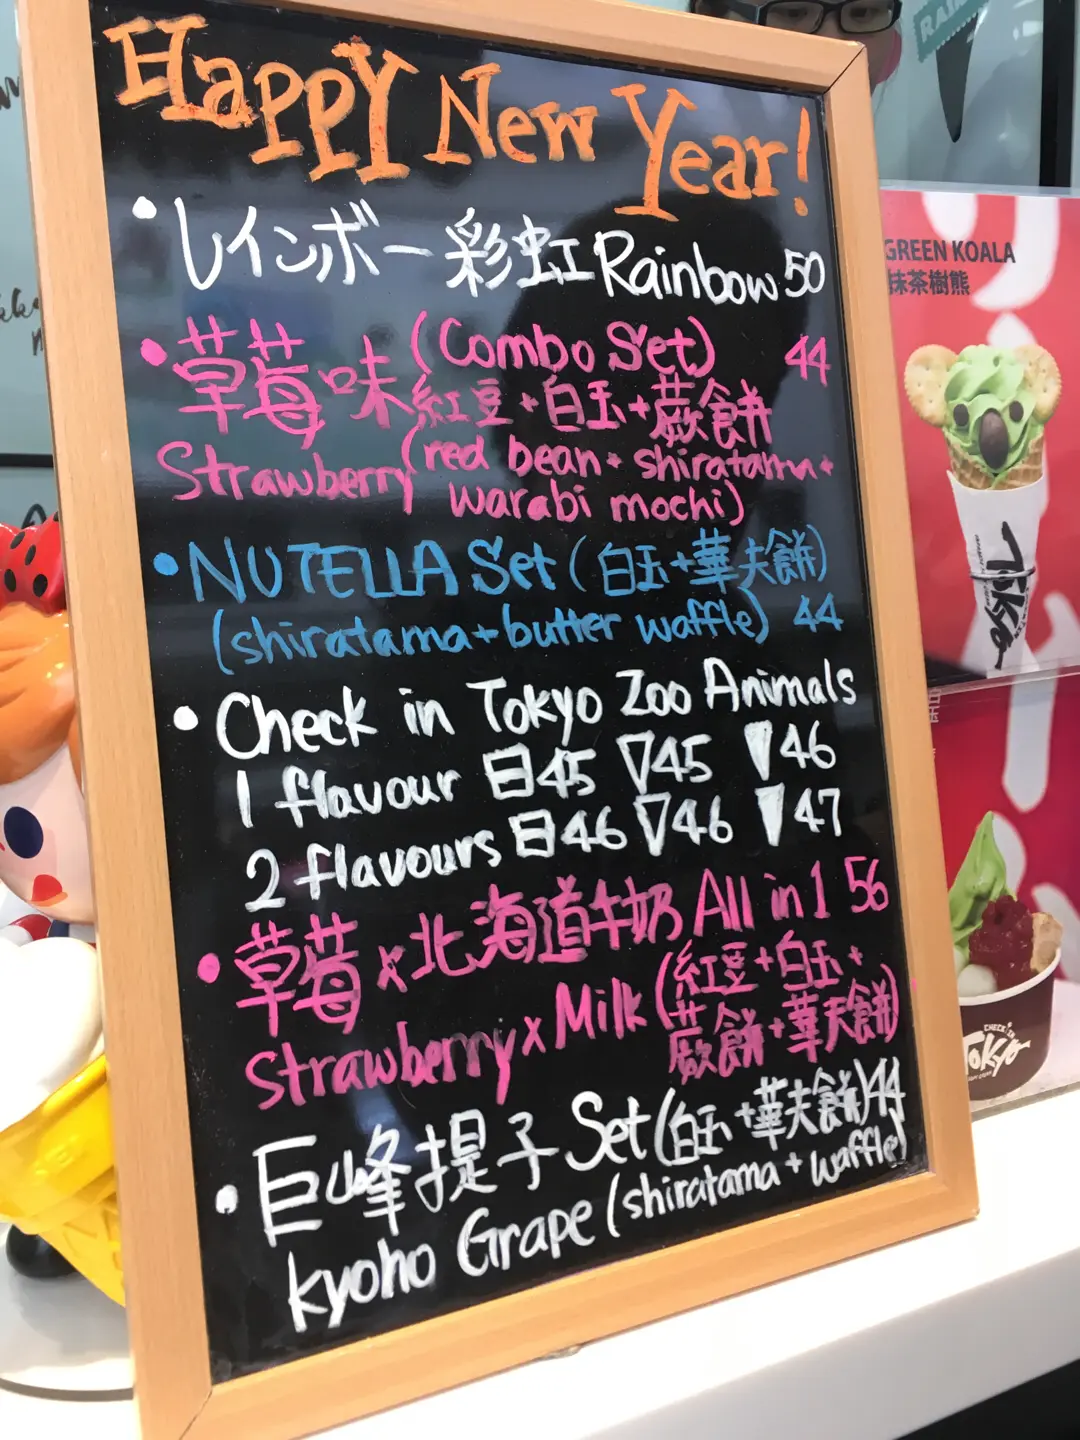 Happy New Year!
• レインボー 彩虹 Rainbow 50
• 草莓味 (Combo Set) 44
紅豆+白玉+蕨餅
Strawberry (red bean+shiratama+
warabi mochi)
• NUTELLA Set (白玉+華夫餅)
(shiratama+butter waffle) 44
• Check in Tokyo Zoo Animals
1 flavour 45 45 46
2 flavours 46 46 47
• 草莓x北海道牛奶 All in 1 56
Strawberry x Milk (紅豆+白玉+
蕨餅+華夫餅)
• 巨峰提子 Set (白玉+華夫餅) 44
Kyoho Grape (shiratama+waffle)
GREEN KOALA
抹茶樹熊
TOKYO
CHECK IN
TOKYO